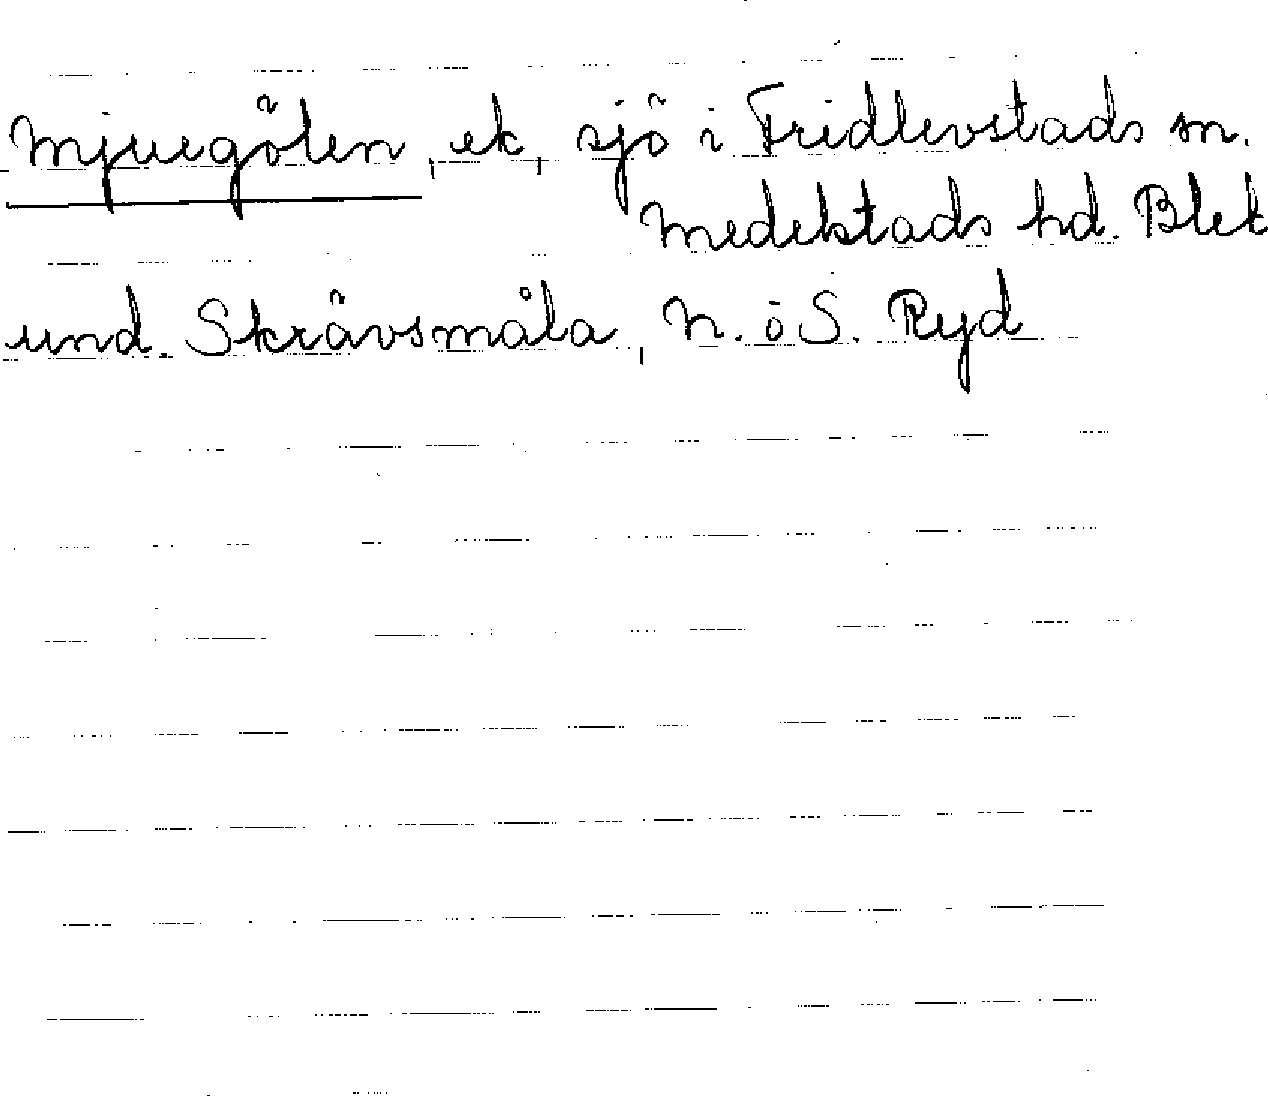 Mjuegölen, ek, sjö i Fridlevstads sn.
Medelstads hd. Blek
und. Skrävsmåla, N. ö S. Ryd